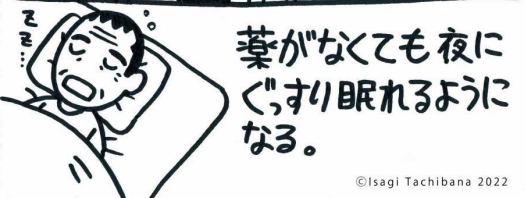 そそ…
薬がなくても夜に
ぐっすり眠れるように
なる。
©Isagi Tachibana 2022